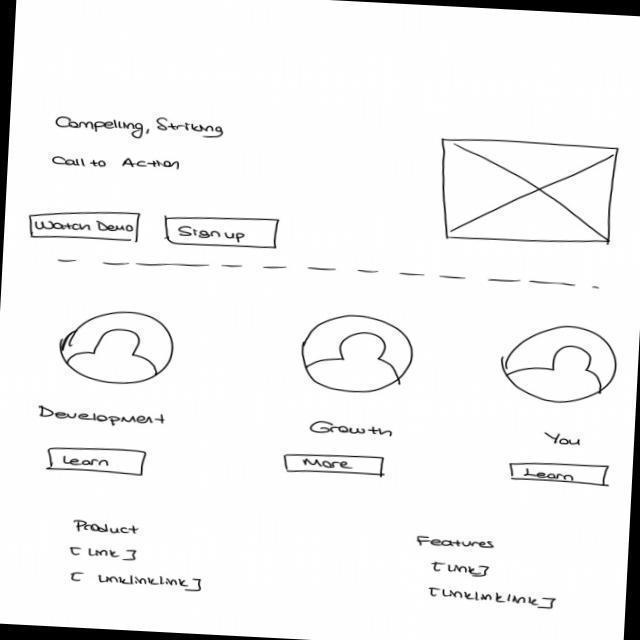 Compelling, Striking
Call to Action
Watch Demo
Sign up
Development
Growth
You
Learn
More
Learn
Product
[ Link ]
[ Linklinklink ]
Features
[ Link ]
[ Linklinklink ]